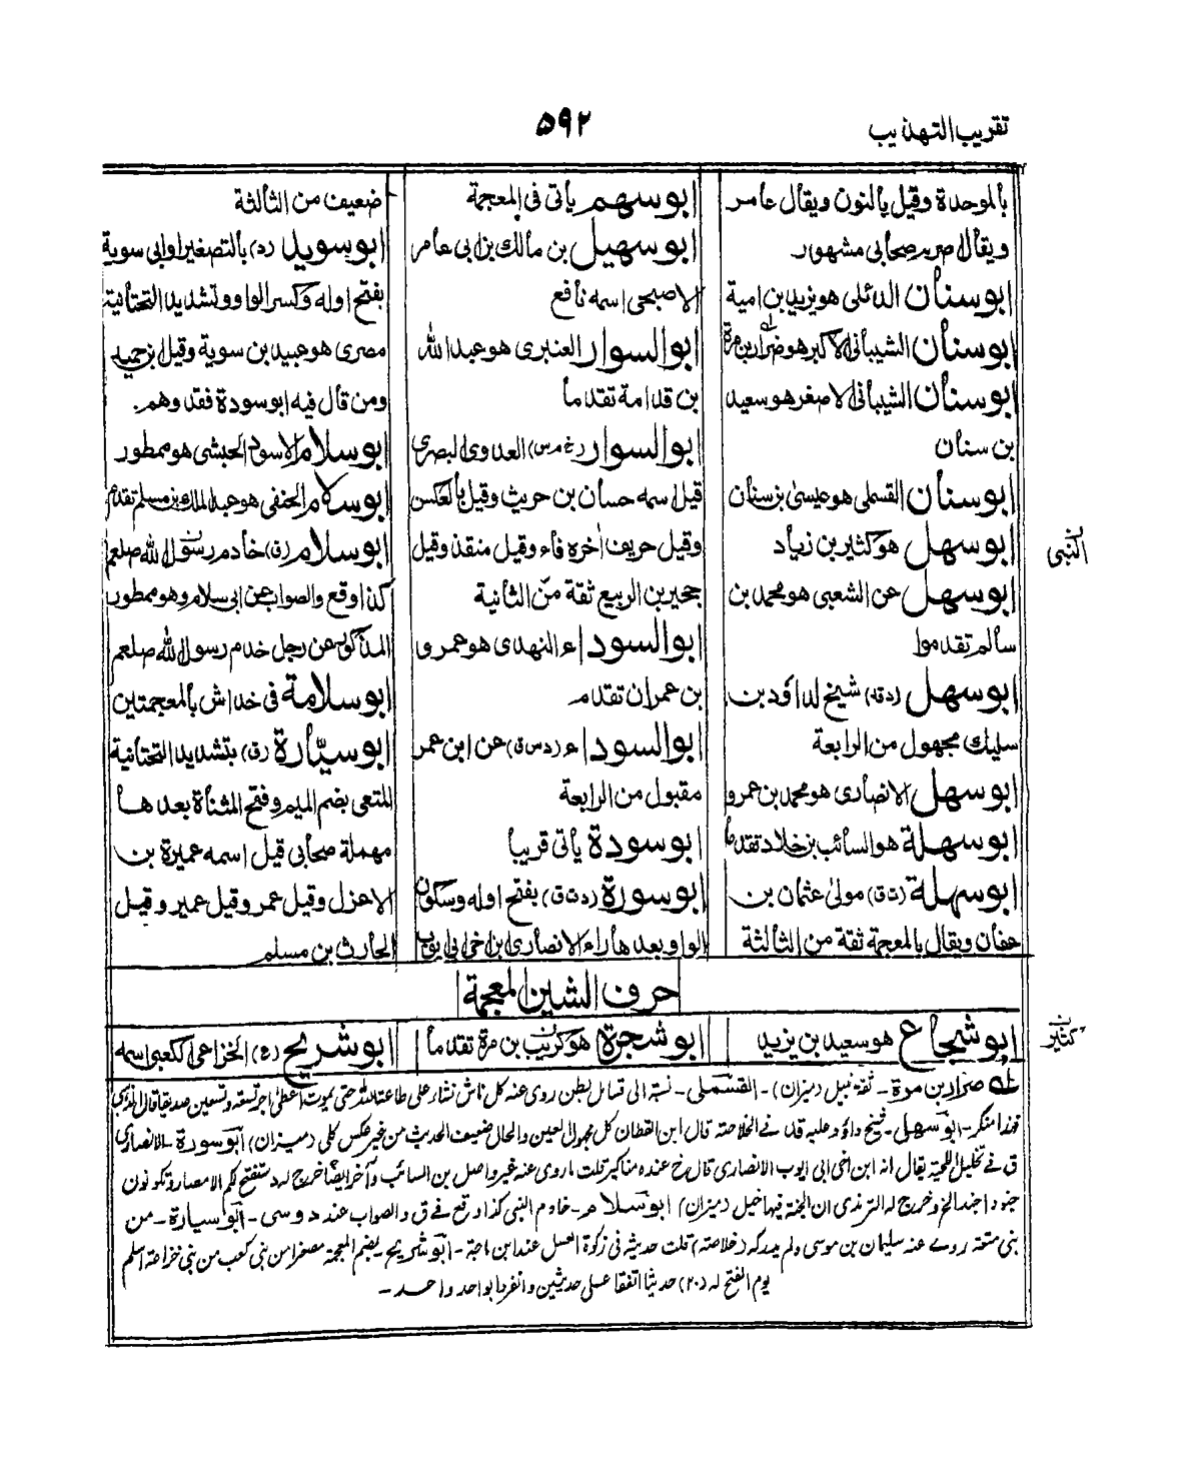 تقريب التهذيب
۵۹۲
بالموحدة وقيل بالنون ويقال عامر
ويقال صريم صحابى مشهور
ابو سنان الدئلى هو يزيد بن امية
ابو سنان الشيبانى الاكبر هو ضرار بن مرة
ابو سنان الشيبانى الاصغر هو سعيد
بن سنان
ابو سنان القسملى هو عيسى بن سنان
ابو سهل هو كثير بن زياد
ابو سهل عن الشعبى هو محمد بن
سالم تقدموا
ابو سهل شيخ لداؤد بن
سليك مجهول من الرابعة
ابو سهل الانصارى هو محمد بن عمرو
ابو سهلة هو السائب بن خلاد تقدما
ابو سهلة (ت ق) مولى عثمان بن
عفان ويقال بالمعجمة ثقة من الثالثة
ابو سهم ياتى فى المعجمة
ابو سهيل بن مالك بن ابى عامر
الاصبحى اسمه نافع
ابو السوار العنبرى هو عبد الله
بن قدامة تقدما
ابو السوار (خ م س) العدوى البصرى
قيل اسمه حسان بن حريث وقيل بالعكس
وقيل حريف اخره فاء وقيل منقذ وقيل
جحير بن الربيع ثقة من الثانية
ابو السوداء النهدى هو عمرو
بن عمران تقدم
ابو السوداء (د س ق) عن ابن عمر
مقبول من الرابعة
ابو سودة ياتى قريبا
ابو سورة (د ت ق) بفتح اوله وسكون
الواو بعدها راء الانصارى ابن اخى ابى ايوب
ضعيف من الثالثة
ابو سويد (د) بالتصغير او ابى سوية
بفتح اوله وكسر الواو وتشديد التحتانية
مصرى هو عبيد بن سوية وقيل بن حميد
ومن قال فيه ابو سودة فقد وهم.
ابو سلام الاسود الحبشى هو ممطور
ابو سلام الحنفى هو عبد الملك بن مسلم تقدم
ابو سلام (ق) خادم رسول الله صلعم
كذا وقع والصواب عن ابى سلام وهو ممطور
المذكور عن رجل خدم رسول الله صلعم
ابو سلامة فى خداش بالمعجمتين
ابو سيّارة (ق) بتشديد التحتانية
المتعى بضم الميم وفتح المثناة بعدها
مهملة صحابى قيل اسمه عميرة بن
الاعزل وقيل عمر وقيل عمير وقيل
الحارث بن مسلم
ن
النبى
حرف الشين المعجمة
ابو شجاع هو سعيد بن يزيد
ابو شجرة هو كثير بن مرة تقدما
ابو شريح (ع) الخزاعى الكعبى اسمه
ن
كثير
له ضرار بن مرة - ثقة نبيل (ميزان) - القسملى - نسبة الى قسامل بطن روى عنه كل ناش نشار على طاعة الله حتى يموت اعطى اجر تسعة وتسعين صديقا قال الذهبى
هذا منكر - ابو سهل - شيخ داؤد وعليه قد فى الخلاصة قال ابن القطان كل مجهول العين والحال ضعيف الحديث من غير عكس كلى (ميزان) ابو سودة - الانصارى
ق فى تخليل اللحية يقال انه ابن اخى ابى ايوب الانصارى قال خ عنده مناكير قلت ما روى عنه غير واصل بن السائب وآخر ايضا خرج له د ستفتح لكم الامصار وتكونون
جنودا جند الخ وخرج له الترمذى ان الجنة فيها خيل (ميزان) ابو سلام - خادم النبى كذا وقع فى ق والصواب عند د وسى - ابو سيارة - من
بنى متعة روى عنه سليمان بن موسى ولم يدركه (خلاصة) قلت حديثه فى زكوة العسل عند ابن ماجة - ابو شريح - بضم المعجمة مصغرا من بنى كعب من بنى خزاعة اسلم
يوم الفتح له (۲۰) حديثا اتفقا على حديثين وانفردا بواحد واحد -